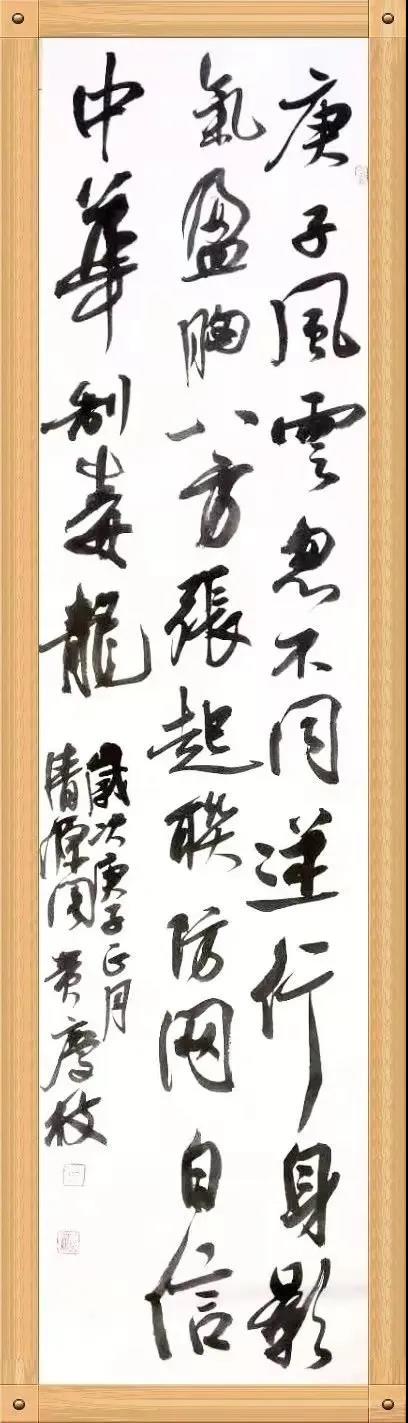 庚子風雲忽不同逆行身影
氣盈胸八方張起聯防网自信
中華制毒龍
歲次庚子正月
清源黄慶枝